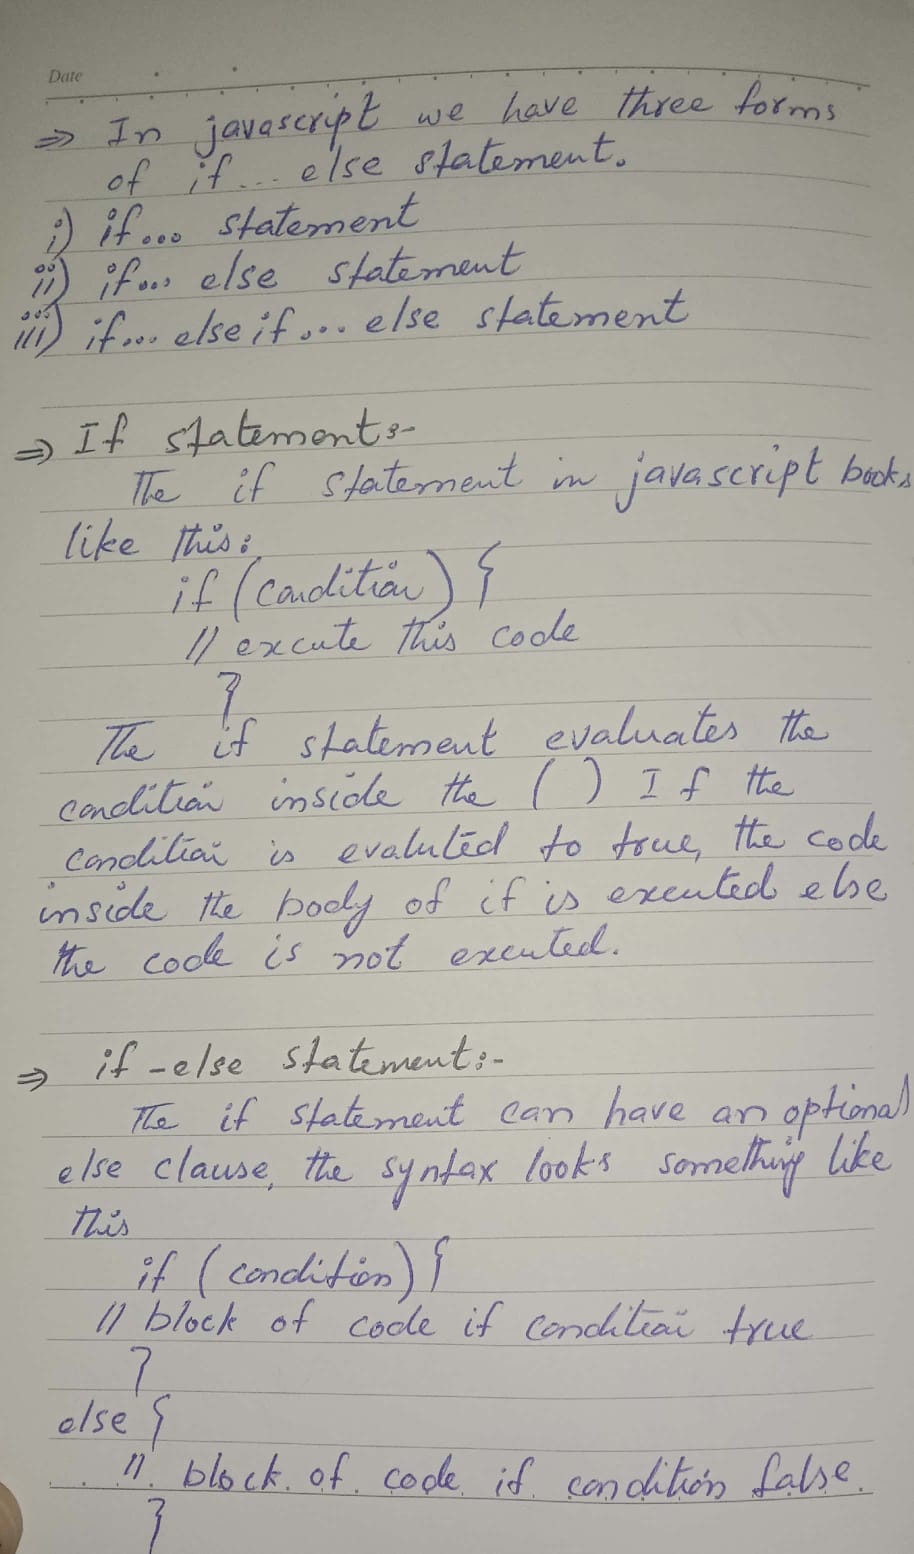 Date
⇒ In javascript we have three forms
of if... else statement.
i) if... statement
ii) if... else statement
iii) if... else if... else statement
⇒ If statement:-
The if statement in javascript books
like this:
if (condition) {
// execute this code
}
The if statement evaluates the
condition inside the ( ) If the
condition is evaluted to true, the code
inside the body of if is executed else
the code is not executed.
⇒ if-else statement:-
The if statement can have an optional
else clause, the syntax looks something like
this
if (condition) {
// block of code if condition true
}
else {
// block of code if condition false
}